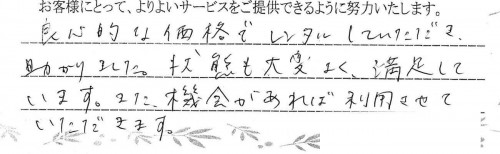 お客様にとって、よりよいサービスをご提供できるように努力いたします。
良心的な価格でレンタルしていただき、
助かりました。状態も大変よく、満足して
います。また、機会があれば利用させて
いただきます。